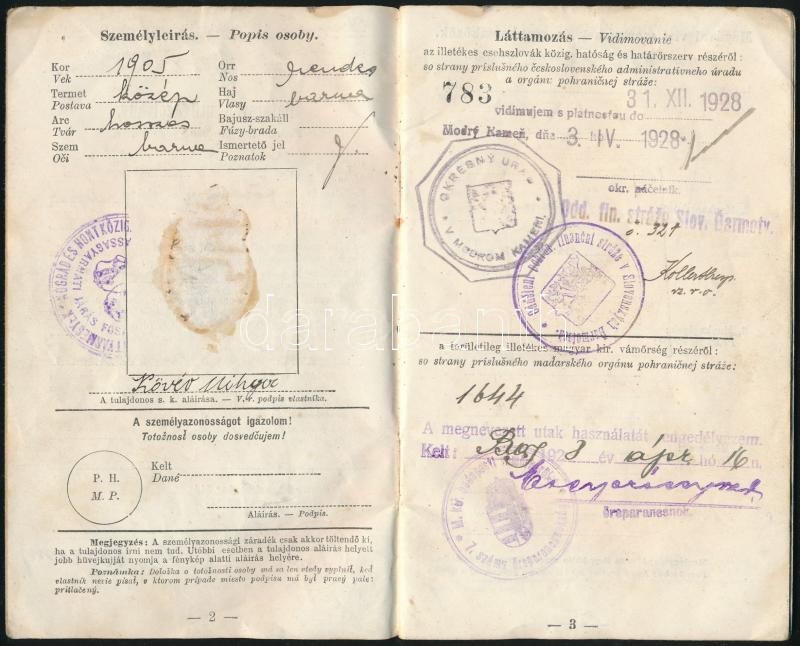 Személyleírás. — Popis osoby.
Kor 1905 Orr rendes
Vek Nos
Termet közép Haj barna
Postava Vlasy
Arc hosszas Bajusz-szakáll
Tvár Fúzy-brada
Szem barna Ismertető jel
Oči Poznatok
A tulajdonos s. k. aláírása. — V. r. podpis vlastníka.
A személyazonosságot igazolom!
Totožnosť osoby dosvedčujem!
P. H.
M. P.
Kelt
Dané
Aláírás. — Podpis.
Megjegyzés: A személyazonossági záradék csak akkor töltendő ki,
ha a tulajdonos írni nem tud. Utóbbi esetben a tulajdonos aláírás helyett
jobb hüvejkujját nyomja a fénykép alatti aláírás helyére.
Poznámka: Doložka o totožnosti osoby má sa len vtedy vyplniť, keď
vlastník nezie písať, v ktorom prípade miesto podpisu má byť pravý palec
pritlačený.
— 2 —
Láttamozás — Vidimovanie
az illetékes csehszlovák közig. hatóság és határőrszerv részéről:
so strany príslušného československého administratívneho úradu
a orgánu pohraničnej stráže:
783
31. XII. 1928
vidimujem s platnosťou do
Modrý Kameň, dňa 3. IV. 1928
okr. náčelník.
OKRESNÝ ÚRAD
V MODROM KAMENI.
Odd. fin. stráže Slov. Ďarmoty.
č. 321
a területileg illetékes magyar kir. vámőrség részéről:
so strany príslušného maďarského orgánu pohraničnej stráže:
1644
A megnevezett utak használatát engedélyezem.
Kelt: 192 8 év ápr. hó 16 n.
őrsparancsnok.
— 3 —
darabanth